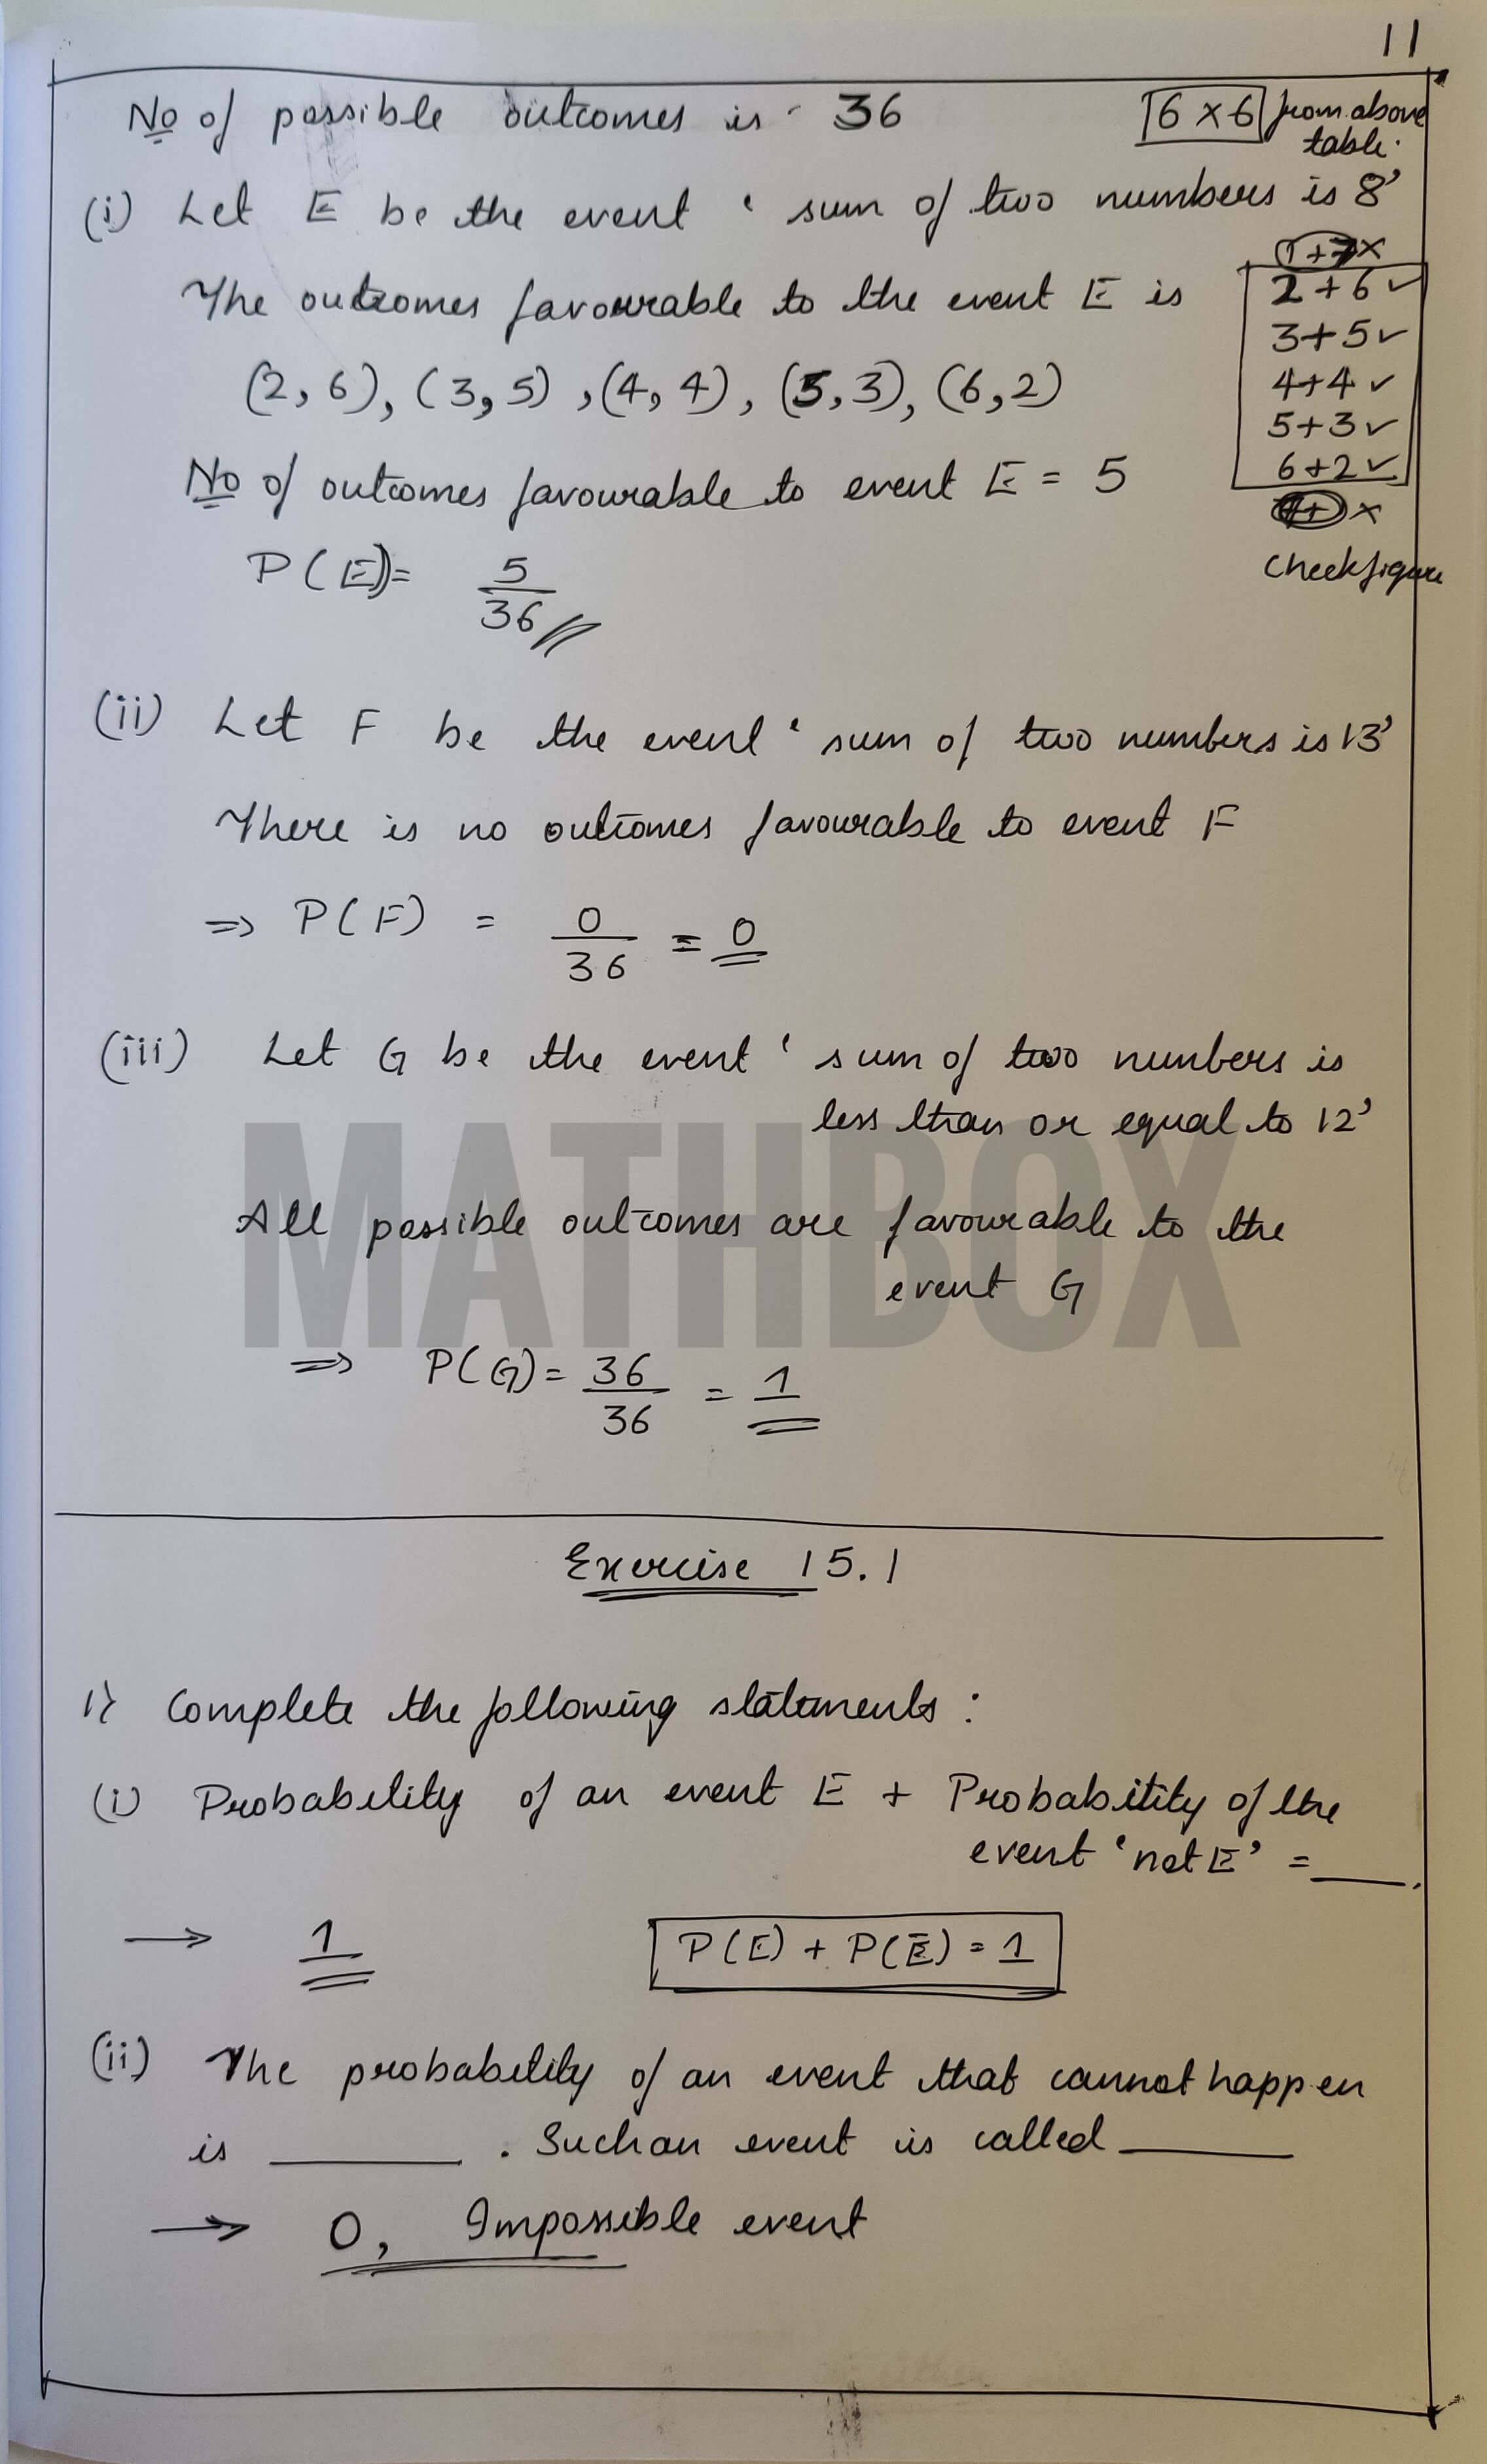 11
No of possible outcomes is 36 6 x 6 from above
table.
(i) Let E be the event ' sum of two numbers is 8'
The outcomes favourable to the event E is
(2, 6), (3, 5), (4, 4), (5, 3), (6, 2)
1+7 x
2+6 ✓
3+5 ✓
4+4 ✓
5+3 ✓
6+2 ✓
x
Check figure
No of outcomes favourable to event E = 5
P(E) = 5/36
(ii) Let F be the event ' sum of two numbers is 13'
There is no outcomes favourable to event F
⇒ P(F) = 0/36 = 0
(iii) Let G be the event ' sum of two numbers is
less than or equal to 12'
MATHBOX
All possible outcomes are favourable to the
event G
⇒ P(G) = 36/36 = 1
Exercise 15.1
1) Complete the following statements :
(i) Probability of an event E + Probability of the
event 'not E' = ____.
→ 1 P(E) + P(Ē) = 1
(ii) The probability of an event that cannot happen
is ____. Such an event is called ____
→ 0, Impossible event